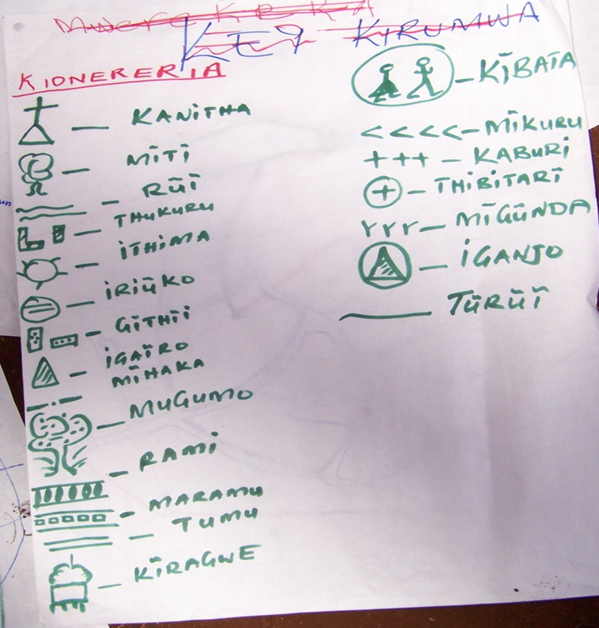 KEY KIRUMWA
KIONERERIA
KANITHA
MĩTĩ
Rũĩ
THUKURU
ITHIMA
IRIũKO
GĩTHIĩ
IGAĩRO
MĩHAKA
MUGUMO
RAMI
MARAMU
TUMU
KĩRAGWE
KĩBATA
<<<<-MĩKURU
+++ - KABURI
THIBITARĩ
rrr - MĩGũNDA
IGANJO
TũRũĩ